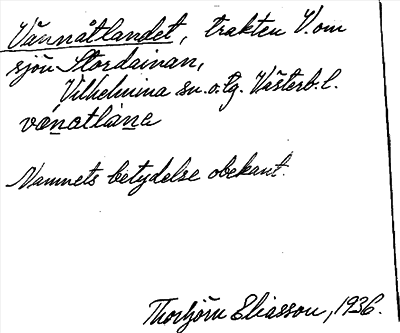 Vännåtlandet, trakten V. om
sjön Stordainan,
Vilhelmina sn. o. tg. Västerb. l.
Namnets betydelse obekant.
Thorbjörn Eliasson, 1936.